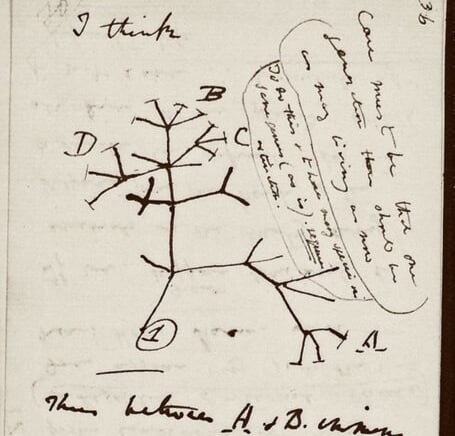 36
I think
Case must be that one
generation then should be
as many living as now
To do this & to have many species in
same genus (as is). requires
extinction.
B
D
C
A
1
Thus between A & B.